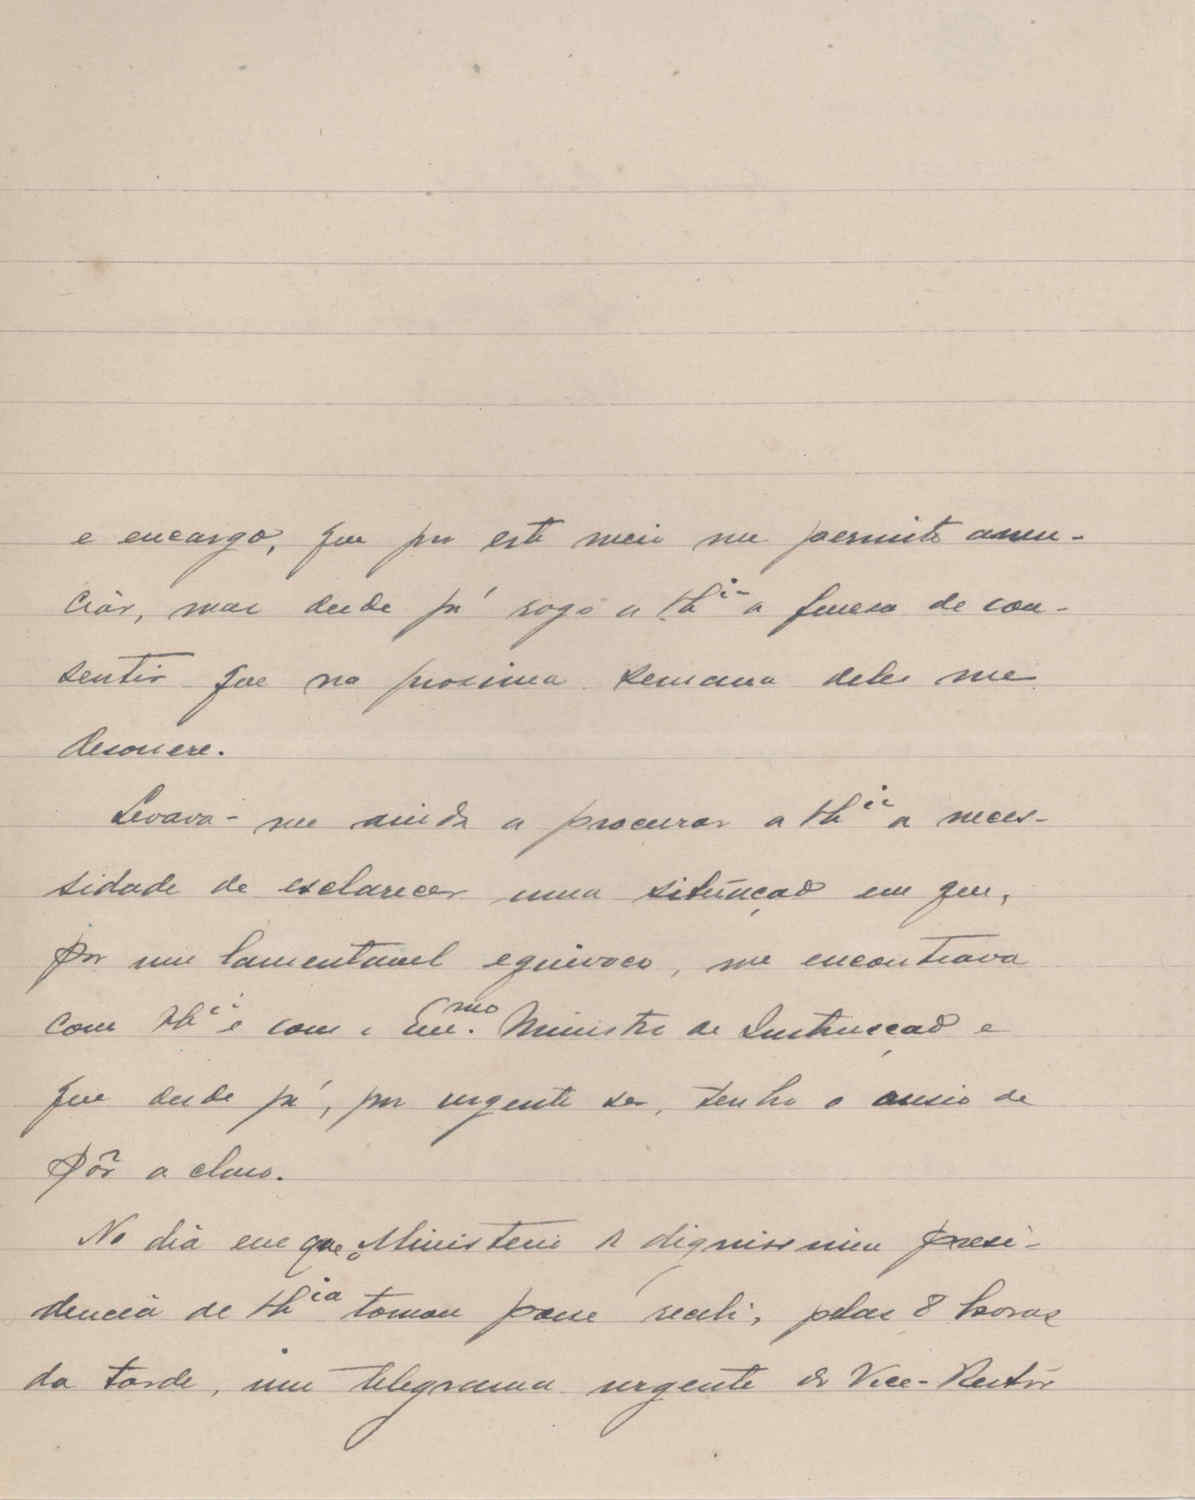 e encargo, que por este meio me permito anun-
ciár, mas desde já rogo a V. Ex.cia a fineza de con-
sentir que na proxima semana deles me
desonere.
Levava-me ainda a procurar a V. Ex.cia a neces-
sidade de esclarecer uma situação em que,
por um lamentavel equivoco, me encontrava
com V. Ex.cia e com o Exmo. Ministro da Instrucção e
que desde já, por urgente ser, tenho o anseio de
pôr a claro.
No dia em que o Ministerio da dignissima presi-
dencia de V. Ex.cia tomou posse recebi, pelas 8 horas
da tarde, um telegrama urgente do Vice-Reitor